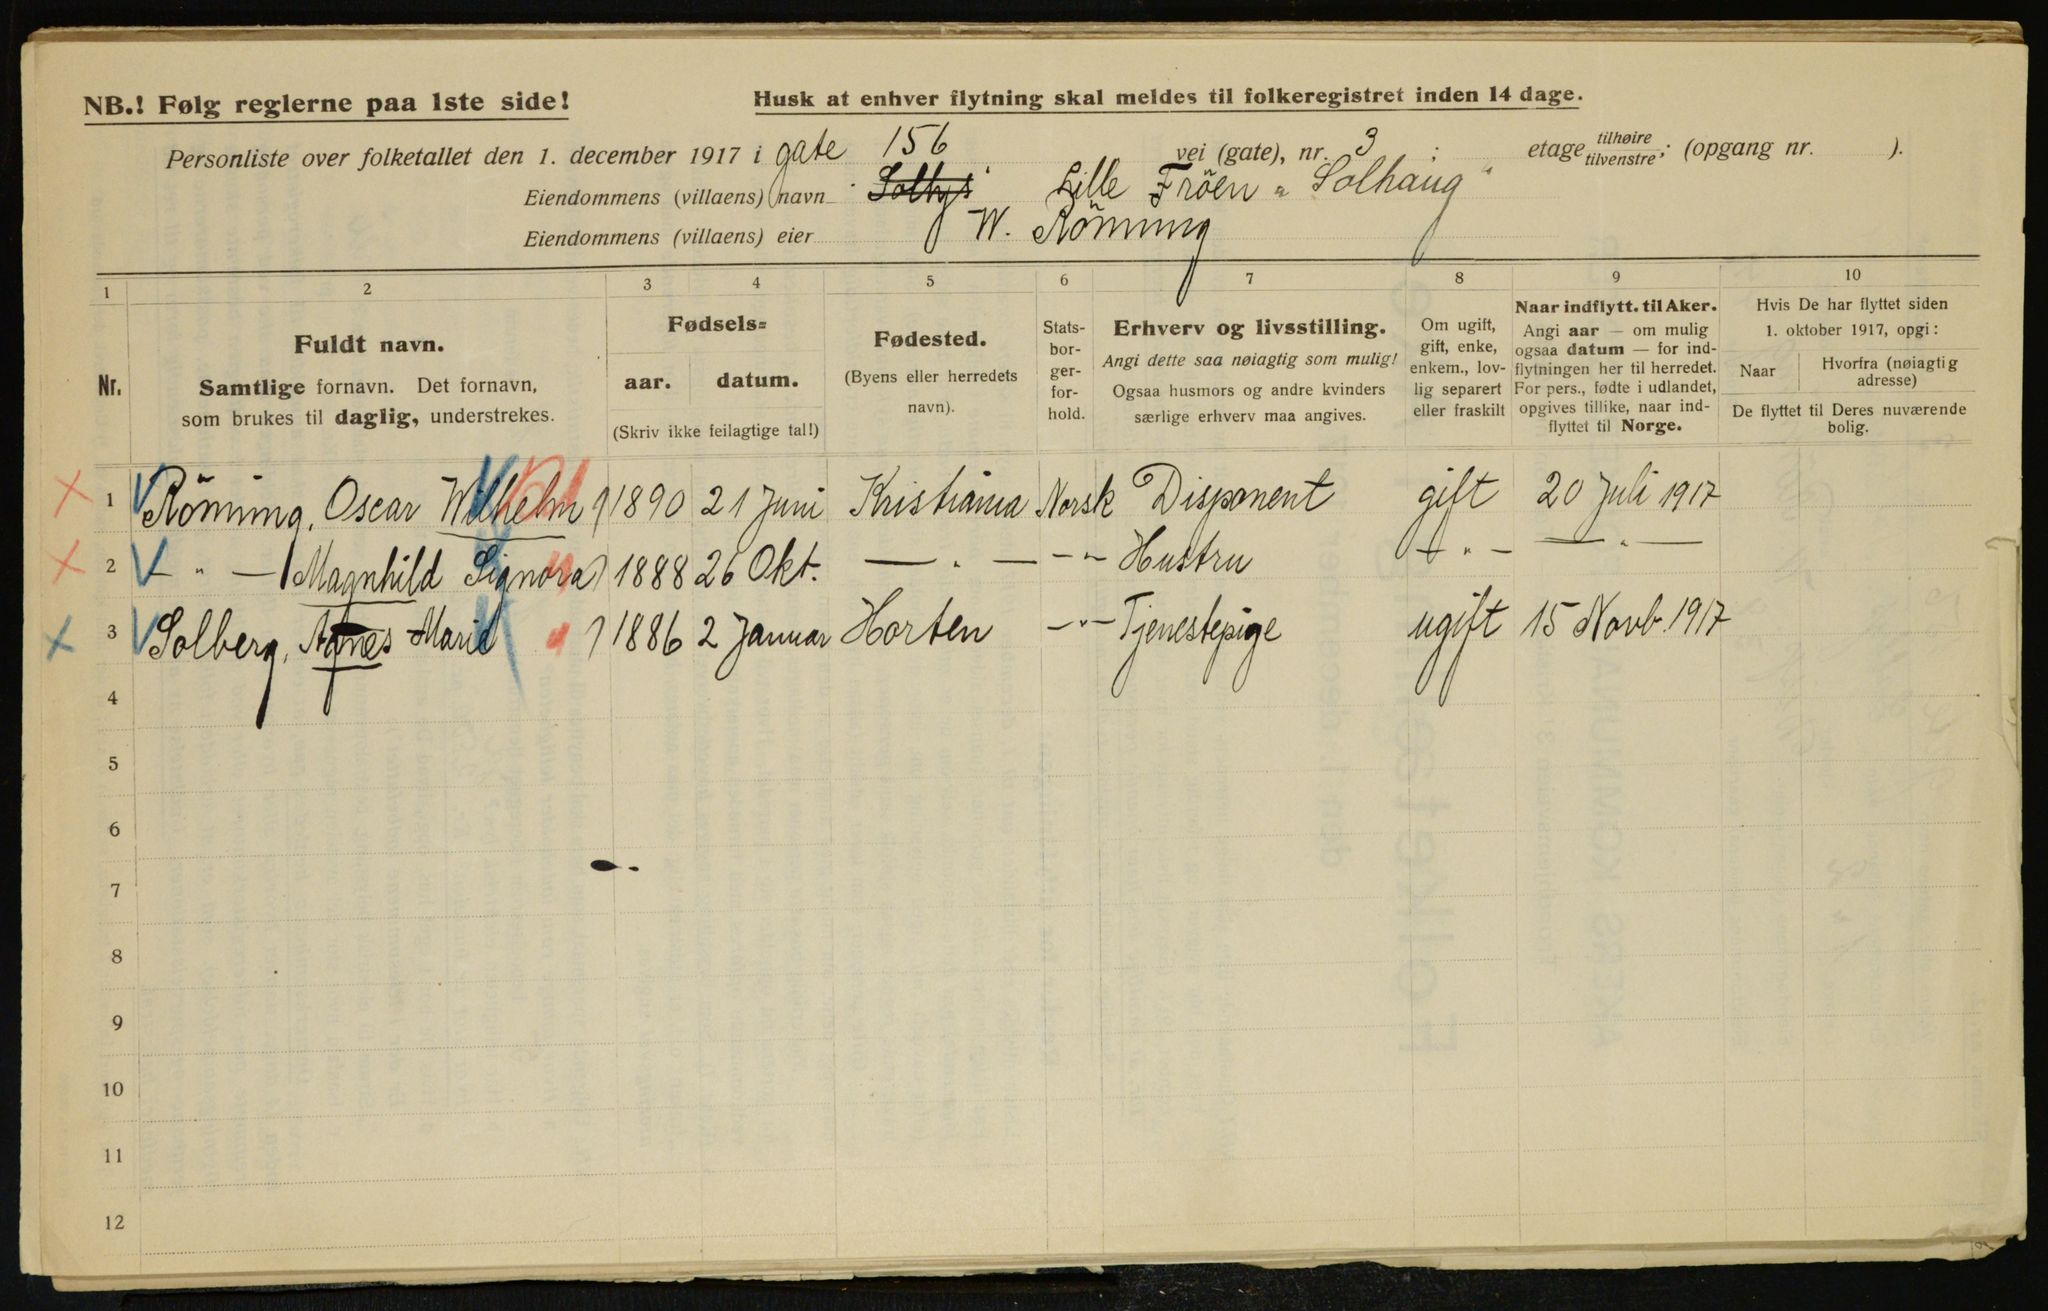 NB.! Følg reglerne paa 1ste side!
Husk at enhver flytning skal meldes til folkeregistret inden 14 dage.
Personliste over folketallet den 1. december 1917 i gate 156 vei (gate), nr. 3 ; etage tilhøire tilvenstre; (opgang nr. ).
Eiendommens (villaens) navn Lille Fröen "Solhaug"
Eiendommens (villaens) eier W. Rönning
1 2 3 4 5 6 7 8 9 10
Nr.
Fuldt navn.
Samtlige fornavn. Det fornavn,
som brukes til daglig, understrekes.
Fødsels=
aar. datum.
(Skriv ikke feilagtige tal!)
Fødested.
(Byens eller herredets
navn).
Stats-
bor-
ger-
for-
hold.
Erhverv og livsstilling.
Angi dette saa nøiagtig som mulig!
Ogsaa husmors og andre kvinders
særlige erhverv maa angives.
Om ugift,
gift, enke,
enkem., lov-
lig separert
eller fraskilt
Naar indflytt. til Aker.
Angi aar — om mulig
ogsaa datum — for ind-
flytningen her til herredet.
For pers., fødte i udlandet,
opgives tillike, naar ind-
flyttet til Norge.
Hvis De har flyttet siden
1. oktober 1917, opgi:
Naar
Hvorfra (nøiagtig
adresse)
De flyttet til Deres nuværende
bolig.
1 Rönning, Oscar Wilhelm 1890 21 Juni Kristiania Norsk Disponent gift 20 Juli 1917
2 — " — Magnhild Signora 1888 26 Okt. — " — — " — Hustru — " — — " —
3 Solberg, Agnes Marie 1886 2 Januar Horten — " — Tjenestepige ugift 15 Novb. 1917
4
5
6
7
8
9
10
11
12